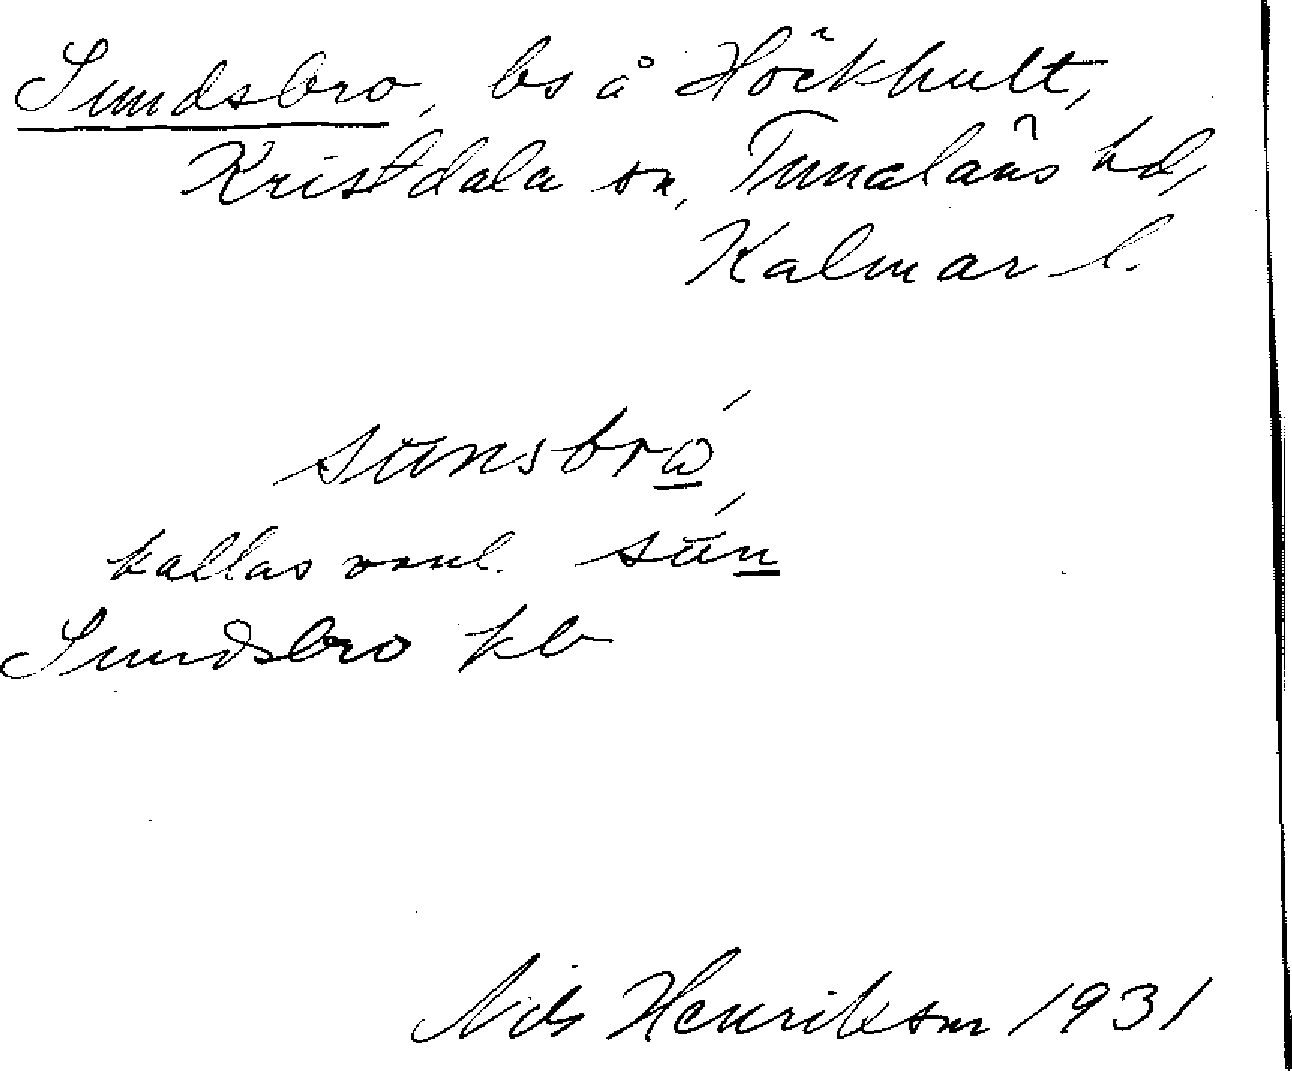 Sundsbro, bs å Höckhult,
Kristdala sn, Tunaläns hd,
Kalmar l.
kallas vanl.
Sundsbro kb
Nils Henrikson 1931